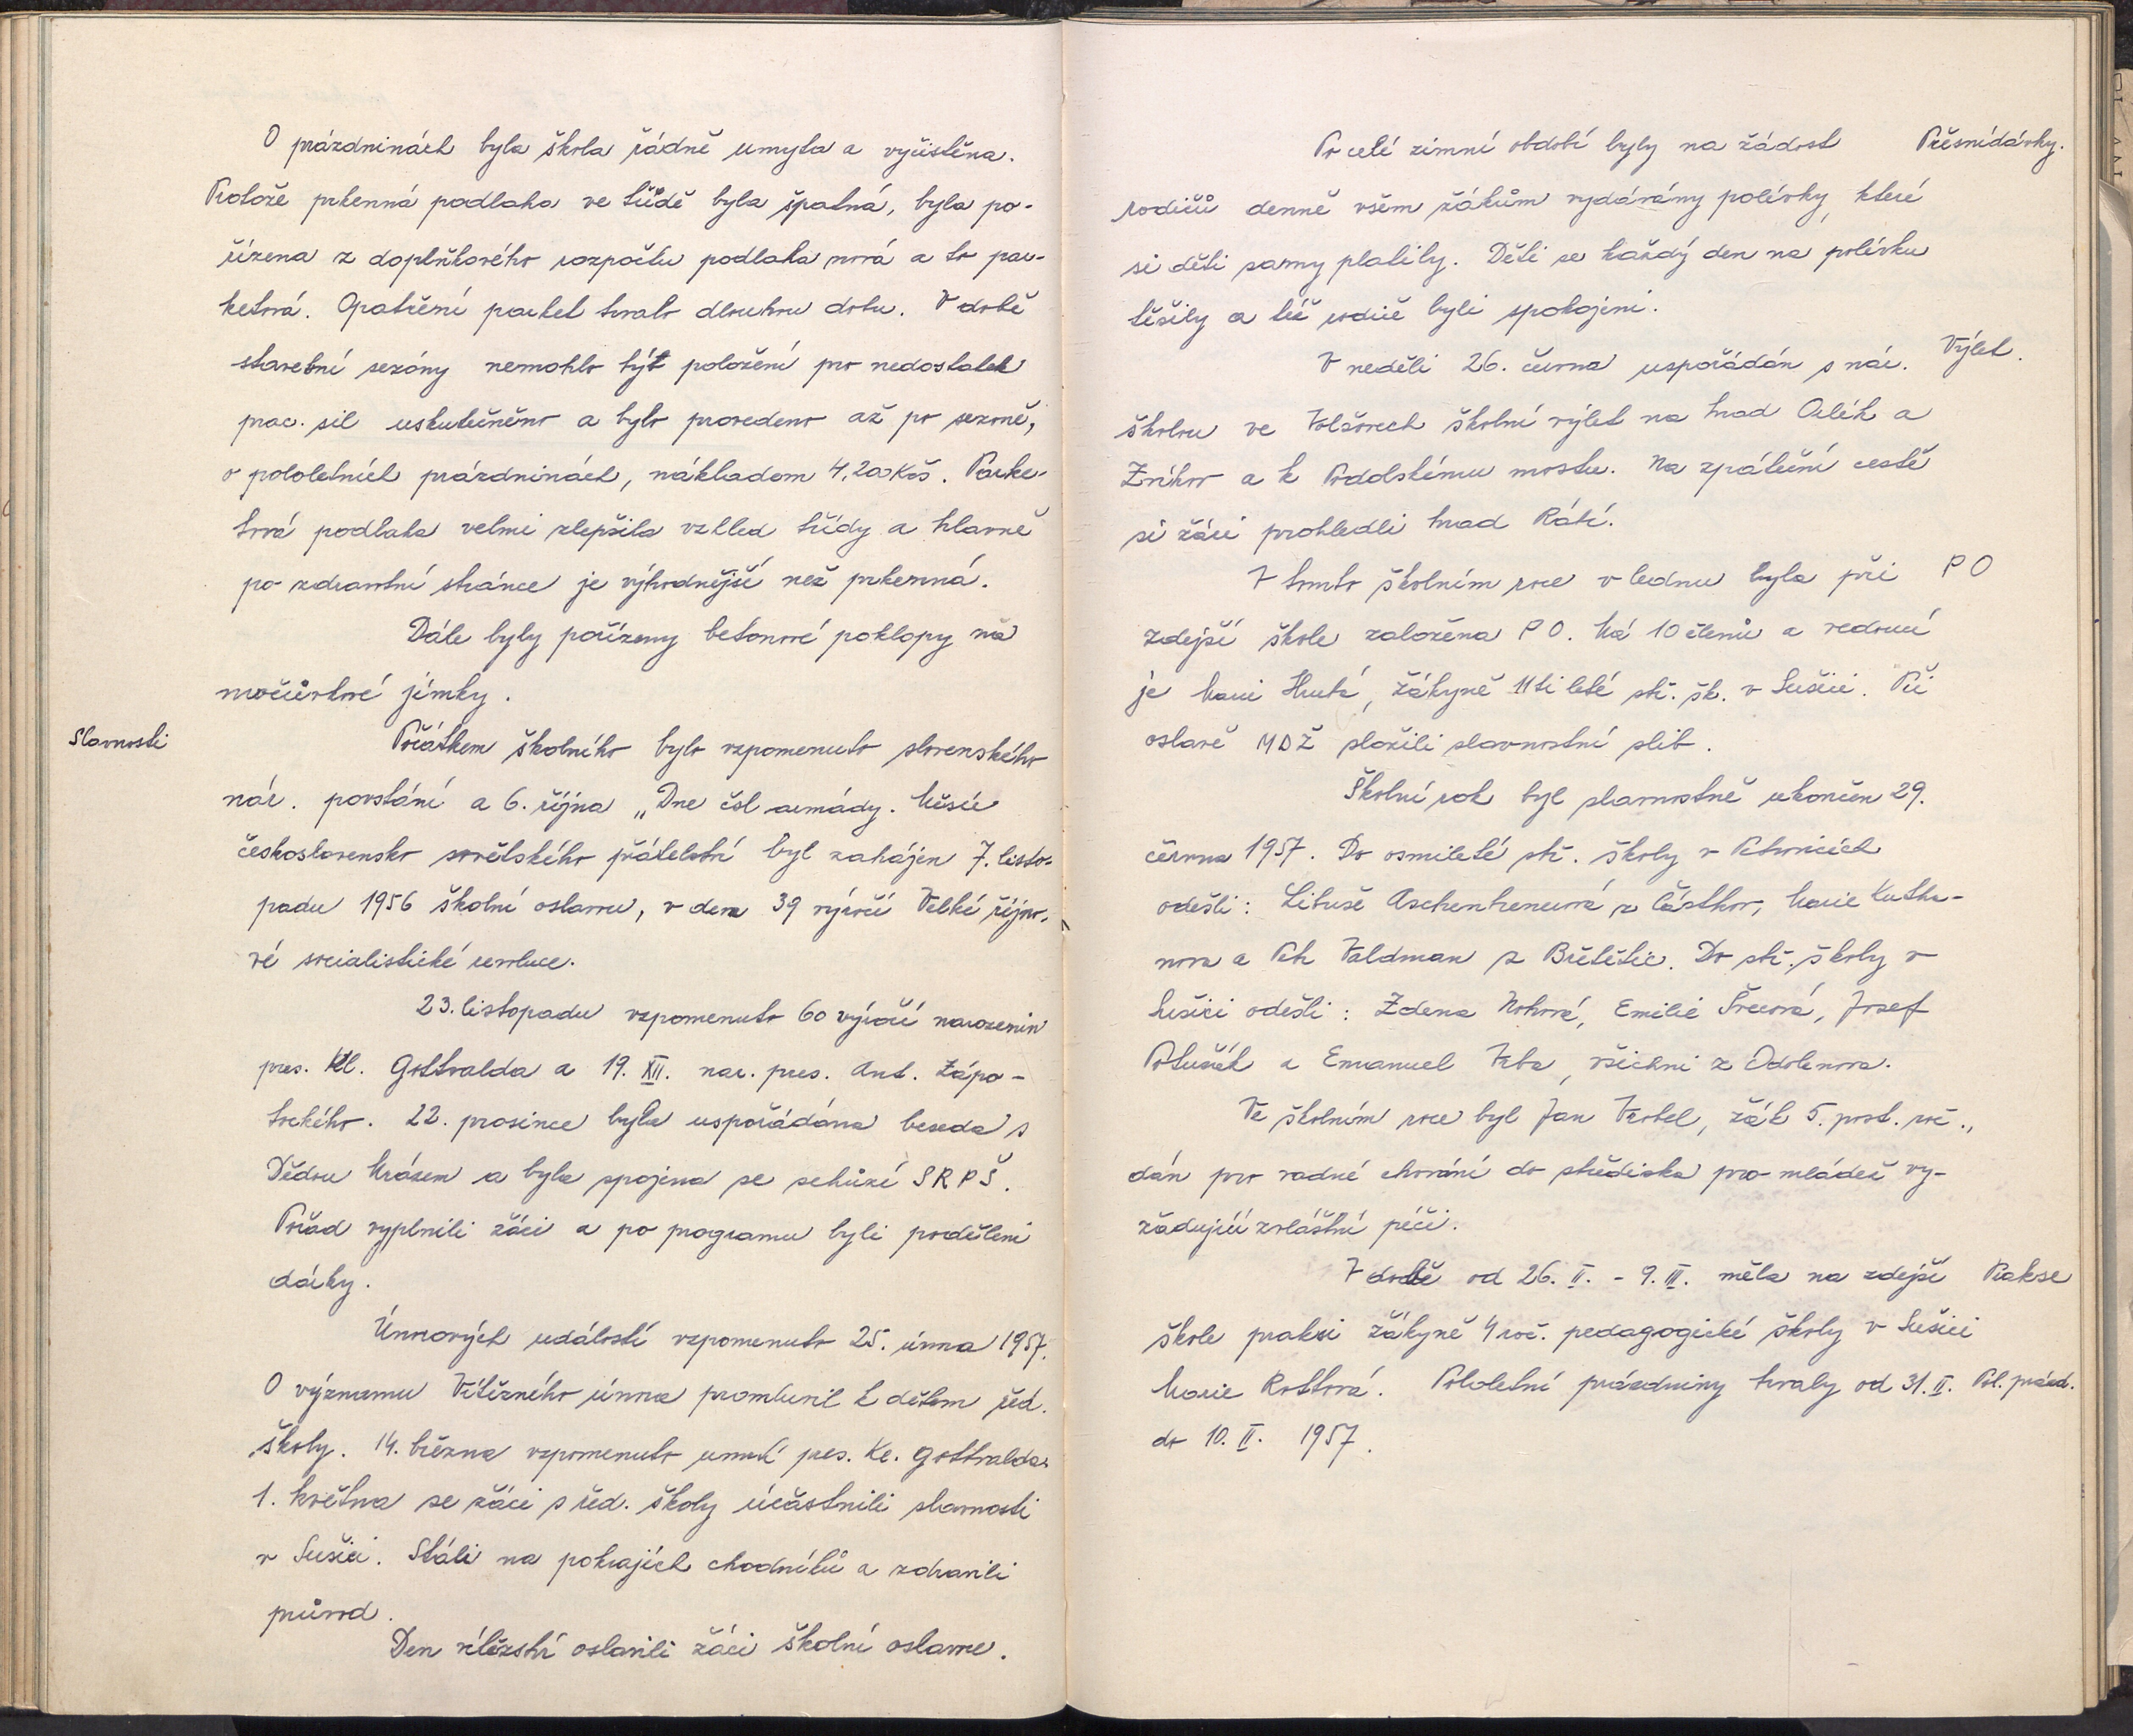 O prázdninách byla škola řádně umyta a vyčistěna.
Protože prkenná podlaha ve třídě byla špatná, byla po-
řízena z doplňkového rozpočtu podlaha nová a to par-
ketová. Opatření parket trvalo dlouhou dobu. V době
stavební sezóny nemohlo být položení pro nedostatek
prac. sil uskutečněno a bylo provedeno až po sezoně,
o pololetních prázdninách, nákladem 4.200 Kčs. Parke-
tová podlaha velmi zlepšila vzhled třídy a hlavně
po zdravotní stránce je výhodnější než prkenná.
Dále byly pořízeny betonové poklopy na
močůvkové jímky.
Slavnosti
Počátkem školního bylo vzpomenuto slovenského
nár. povstání a 6. října „Dne čsl armády. Měsíc
československo sovětského přátelství byl zahájen 7. listo-
padu 1956 školní oslavou, v den 39 výročí Velké říjno-
vé socialistické revoluce.
23. listopadu vzpomenuto 60 výročí narozenin
pres. Kl. Gottvalda a 19. XII. nar. pres. Ant. Zápo-
tockého. 22. prosince byla uspořádána beseda s
Dědou Mrázem a byla spojena se schůzí SRPŠ.
Pořad vyplnili žáci a po programu byli poděleni
dárky.
Únorových událostí vzpomenuto 25. února 1957.
O významu Vítězného února promluvil k dětem řed.
školy. 14. března vzpomenuto úmrtí pres. Kl. Gottvalda.
1. května se žáci s řed. školy účastnili slavnosti
v Sušici. Stáli na pokrajích chodníků a zdravili
průvod.
Den vítězství oslavili žáci školní oslavou.
Po celé zimní období byly na žádost
Přesnídávky.
rodičů denně všem žákům vydávány polévky, které
si děti samy platily. Děti se každý den na polévku
těšily a též rodiče byli spokojeni.
V neděli 26. června uspořádán s nár.
Výlet.
školou ve Volšovech školní výlet na hrad Orlík a
Zvíkov a k Podolskému mostu. Na zpáteční cestě
si žáci prohledli hrad Rábí.
V tomto školním roce v lednu byla při
PO
zdejší škole založena PO. Má 10 členů a vedoucí
je Marie Hrubá, žákyně 11ti leté stř. šk. v Sušici. Při
oslavě MDŽ složili slavnostní slib.
Školní rok byl slavnostně ukončen 29.
června 1957. Do osmileté stř. školy v Petrovicích
odešli: Libuše Aschenbrenerová z Částkov, Marie
a Petr Valdman z Břetětic. Do stř. školy v
Sušici odešli: Zdena Nohová, Emilie Švecová, Josef
a Emanuel Vrba, všichni z Odolenova.
Ve školním roce byl Jan Vrobel, žák 5. post. roč.,
dán pro vadné chování do střediska pro mládež vy-
žadující zvláštní péči.
V době od 26. II. - 9. III. měla na zdejší
Prakse
škole praksi žákyně 4 roč. pedagogické školy v Sušici
Marie Rottová. Pololetní prázdniny trvaly od 31. II.
Pol. prázd.
do 10. II. 1957.